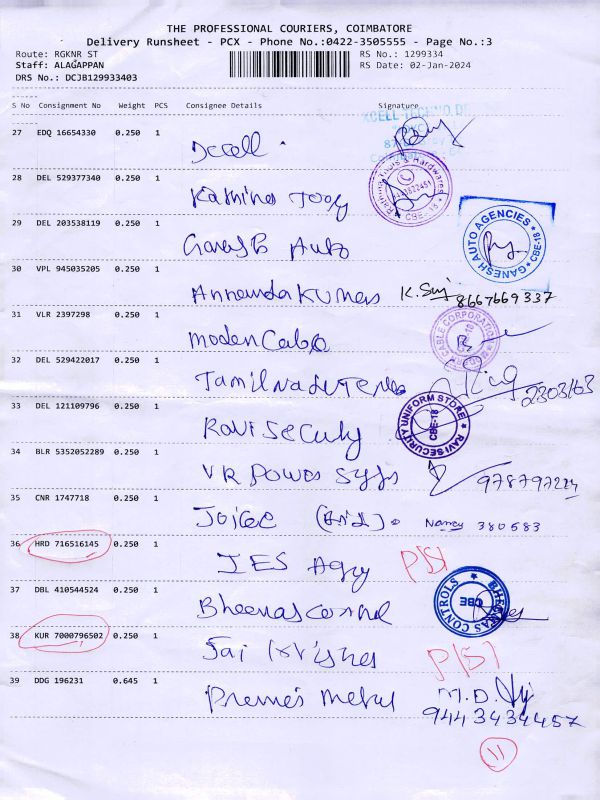 THE PROFESSIONAL COURIERS, COIMBATORE
Delivery Runsheet - PCX - Phone No.:0422-3505555 - Page No.:3
Route: RGKNR ST RS No.: 1299334
Staff: ALAGAPPAN RS Date: 02-Jan-2024
DRS No.: DCJB129933403
S No Consignment No Weight PCS Consignee Details Signature
27 EDQ 16654330 0.250 1
28 DEL 529377340 0.250 1 Kathina
29 DEL 203538119 0.250 1 Ganesh Auto
GANESH AUTO AGENCIES CBE-18
30 VPL 945035205 0.250 1 Annanda Kumar 8667669337
31 VLR 2397298 0.250 1 Moden Cable
CABLE CORPORATION
32 DEL 529422017 0.250 1 Tamilnadu
33 DEL 121109796 0.250 1 Ravi Secuty
RAVI SECURITY UNIFORM STORE CBE-18
34 BLR 5352052289 0.250 1 VR Power Sys
35 CNR 1747718 0.250 1 Nancy 380683
36 HRD 716516145 0.250 1 IES Agy
37 DBL 410544524 0.250 1 Bheemas Control
BHEEMAS CONTROLS CBE
38 KUR 7000796502 0.250 1 Sai
39 DDG 196231 0.645 1 Premes Metal M.D.
9443434457
11